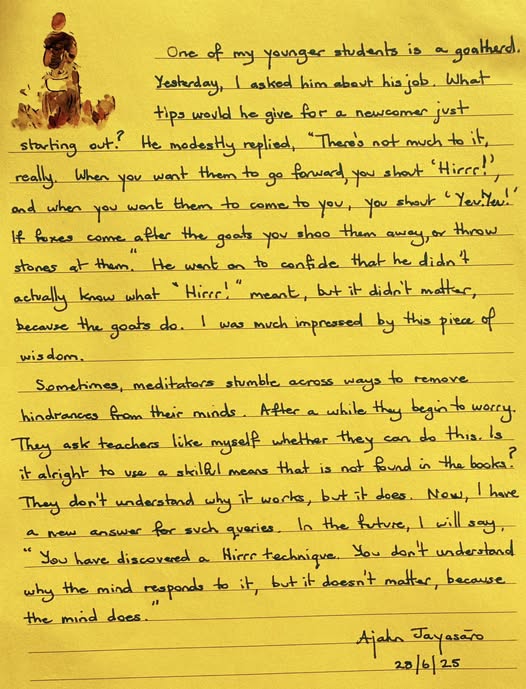 One of my younger students is a goatherd.
Yesterday, I asked him about his job. What
tips would he give for a newcomer just
starting out? He modestly replied, "There's not much to it,
really. When you want them to go forward, you shout 'Hirrr!',
and when you want them to come to you, you shout 'Yeu! Yeu!'
If foxes come after the goats you shoo them away, or throw
stones at them." He went on to confide that he didn't
actually know what "Hirrr!" meant, but it didn't matter,
because the goats do. I was much impressed by this piece of
wisdom.
Sometimes, meditators stumble across ways to remove
hindrances from their minds. After a while they begin to worry.
They ask teachers like myself whether they can do this. Is
it alright to use a skilful means that is not found in the books?
They don't understand why it works, but it does. Now, I have
a new answer for such queries. In the future, I will say,
"You have discovered a Hirrr technique. You don't understand
why the mind responds to it, but it doesn't matter, because
the mind does."
Ajahn Jayasāro
28/6/25